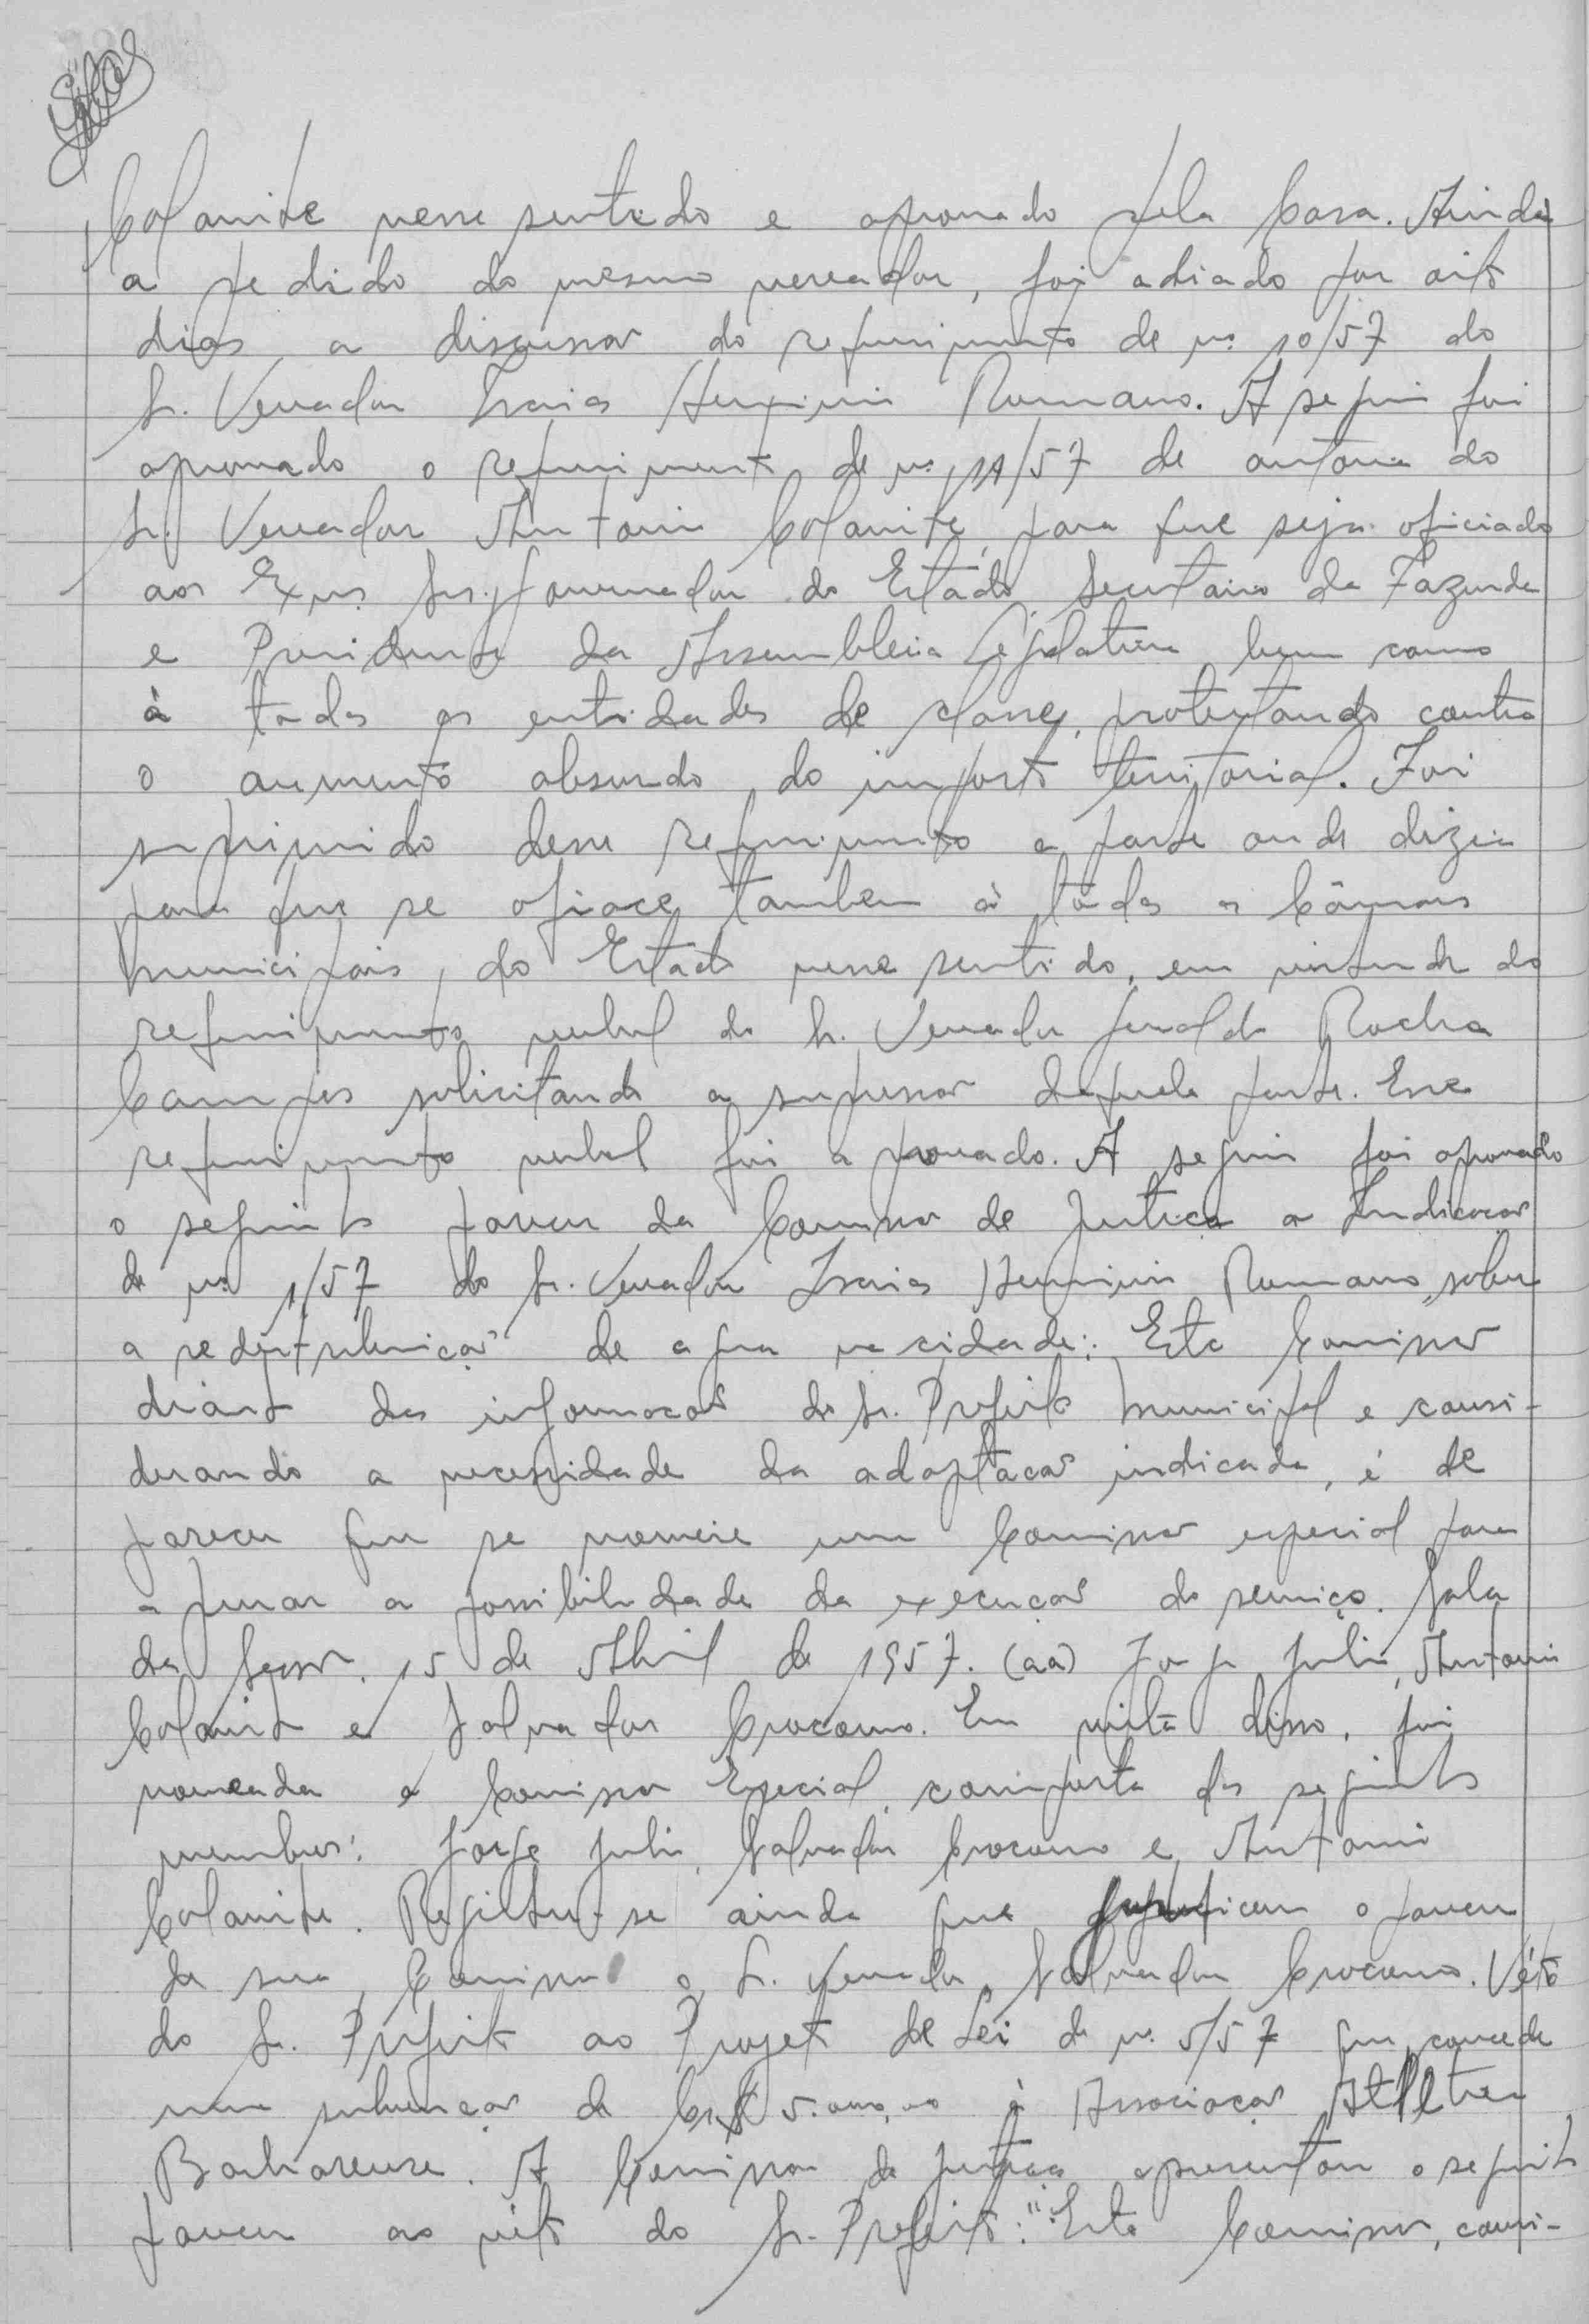 Colanite nesse sentido e aprovado pela Casa. Ainda
a pedido do mesmo vereador, foi adiado por oito
dias a discussão do requerimento de nº 10/57 do
Sr. Vereador Isaias Herminio Romano. A seguir foi
aprovado o requerimento de nº 11/57 de autoria do
Sr. Vereador Antonio Colanite, para que seja oficiado
aos Exmos. Srs. Governador do Estado, Secretario da Fazenda
e Presidente da Assembleia Legislativa bem como
à todas as entidades de classe, protestando contra
o aumento absurdo do imposto territorial. Foi
suprimido desse requerimento a parte onde dizia
para que se oficiace tambem à tôdas as Câmaras
Municipais do Estado nesse sentido, em virtude do
requerimento verbal do Sr. Vereador Geraldo Rocha
Campos solicitando a supressão daquela parte. Esse
requerimento verbal foi aprovado. A seguir foi aprovado
o seguinte parecer da Comissão de Justiça a Indicação
de nº 1/57 do Sr. Vereador Isaias Herminio Romano, sobre
a redistribuição de agua na cidade: Esta Comissão
diante das informações do Sr. Prefeito Municipal e consi-
derando a necessidade da adaptação indicada, é de
parecer que se nomeie uma Comissão especial para
apurar a possibilidade da execução do serviço. Sala
das Sessões, 15 de Abril de 1957. (aa) Jorge Julio, Antonio
Colanite e Salvador Crocomo. Em vista disso, foi
nomeada a Comissão Especial composta dos seguintes
membros: Jorge Julio, Salvador Crocomo e Antonio
Colanite. Registre-se ainda que justificou o parecer
da sua Comissão o Sr. Vereador Salvador Crocomo. Véto
do Sr. Prefeito ao Projeto de Lei de nº 5/57 que concede
uma subvenção de Cr$ 5.000,00 à Associação Atletica
Barbarense. A Comissão de Justiça apresentou o seguinte
parecer ao véto do Sr. Prefeito: "Esta Comissão, consi-